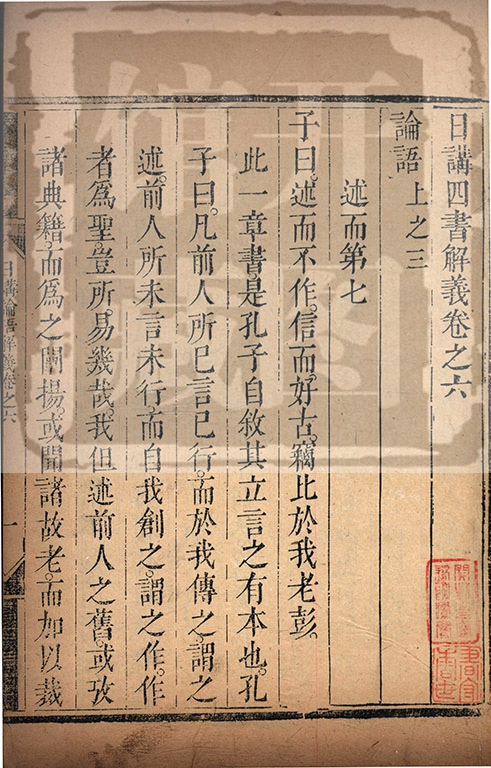 日講四書解義卷之六
論語上之三
述而第七
子曰。述而不作。信而好古。竊比於我老彭。
此一章書。是孔子自敘其立言之有本也。孔
子曰。凡前人所已言已行。而於我傳之。謂之
述。前人所未言未行。而自我創之。謂之作。作
者爲聖。豈所易幾哉。我但述前人之舊。或攷
諸典籍。而爲之闡揚。或聞諸故老。而加以裁
日講論語解義卷之六
一